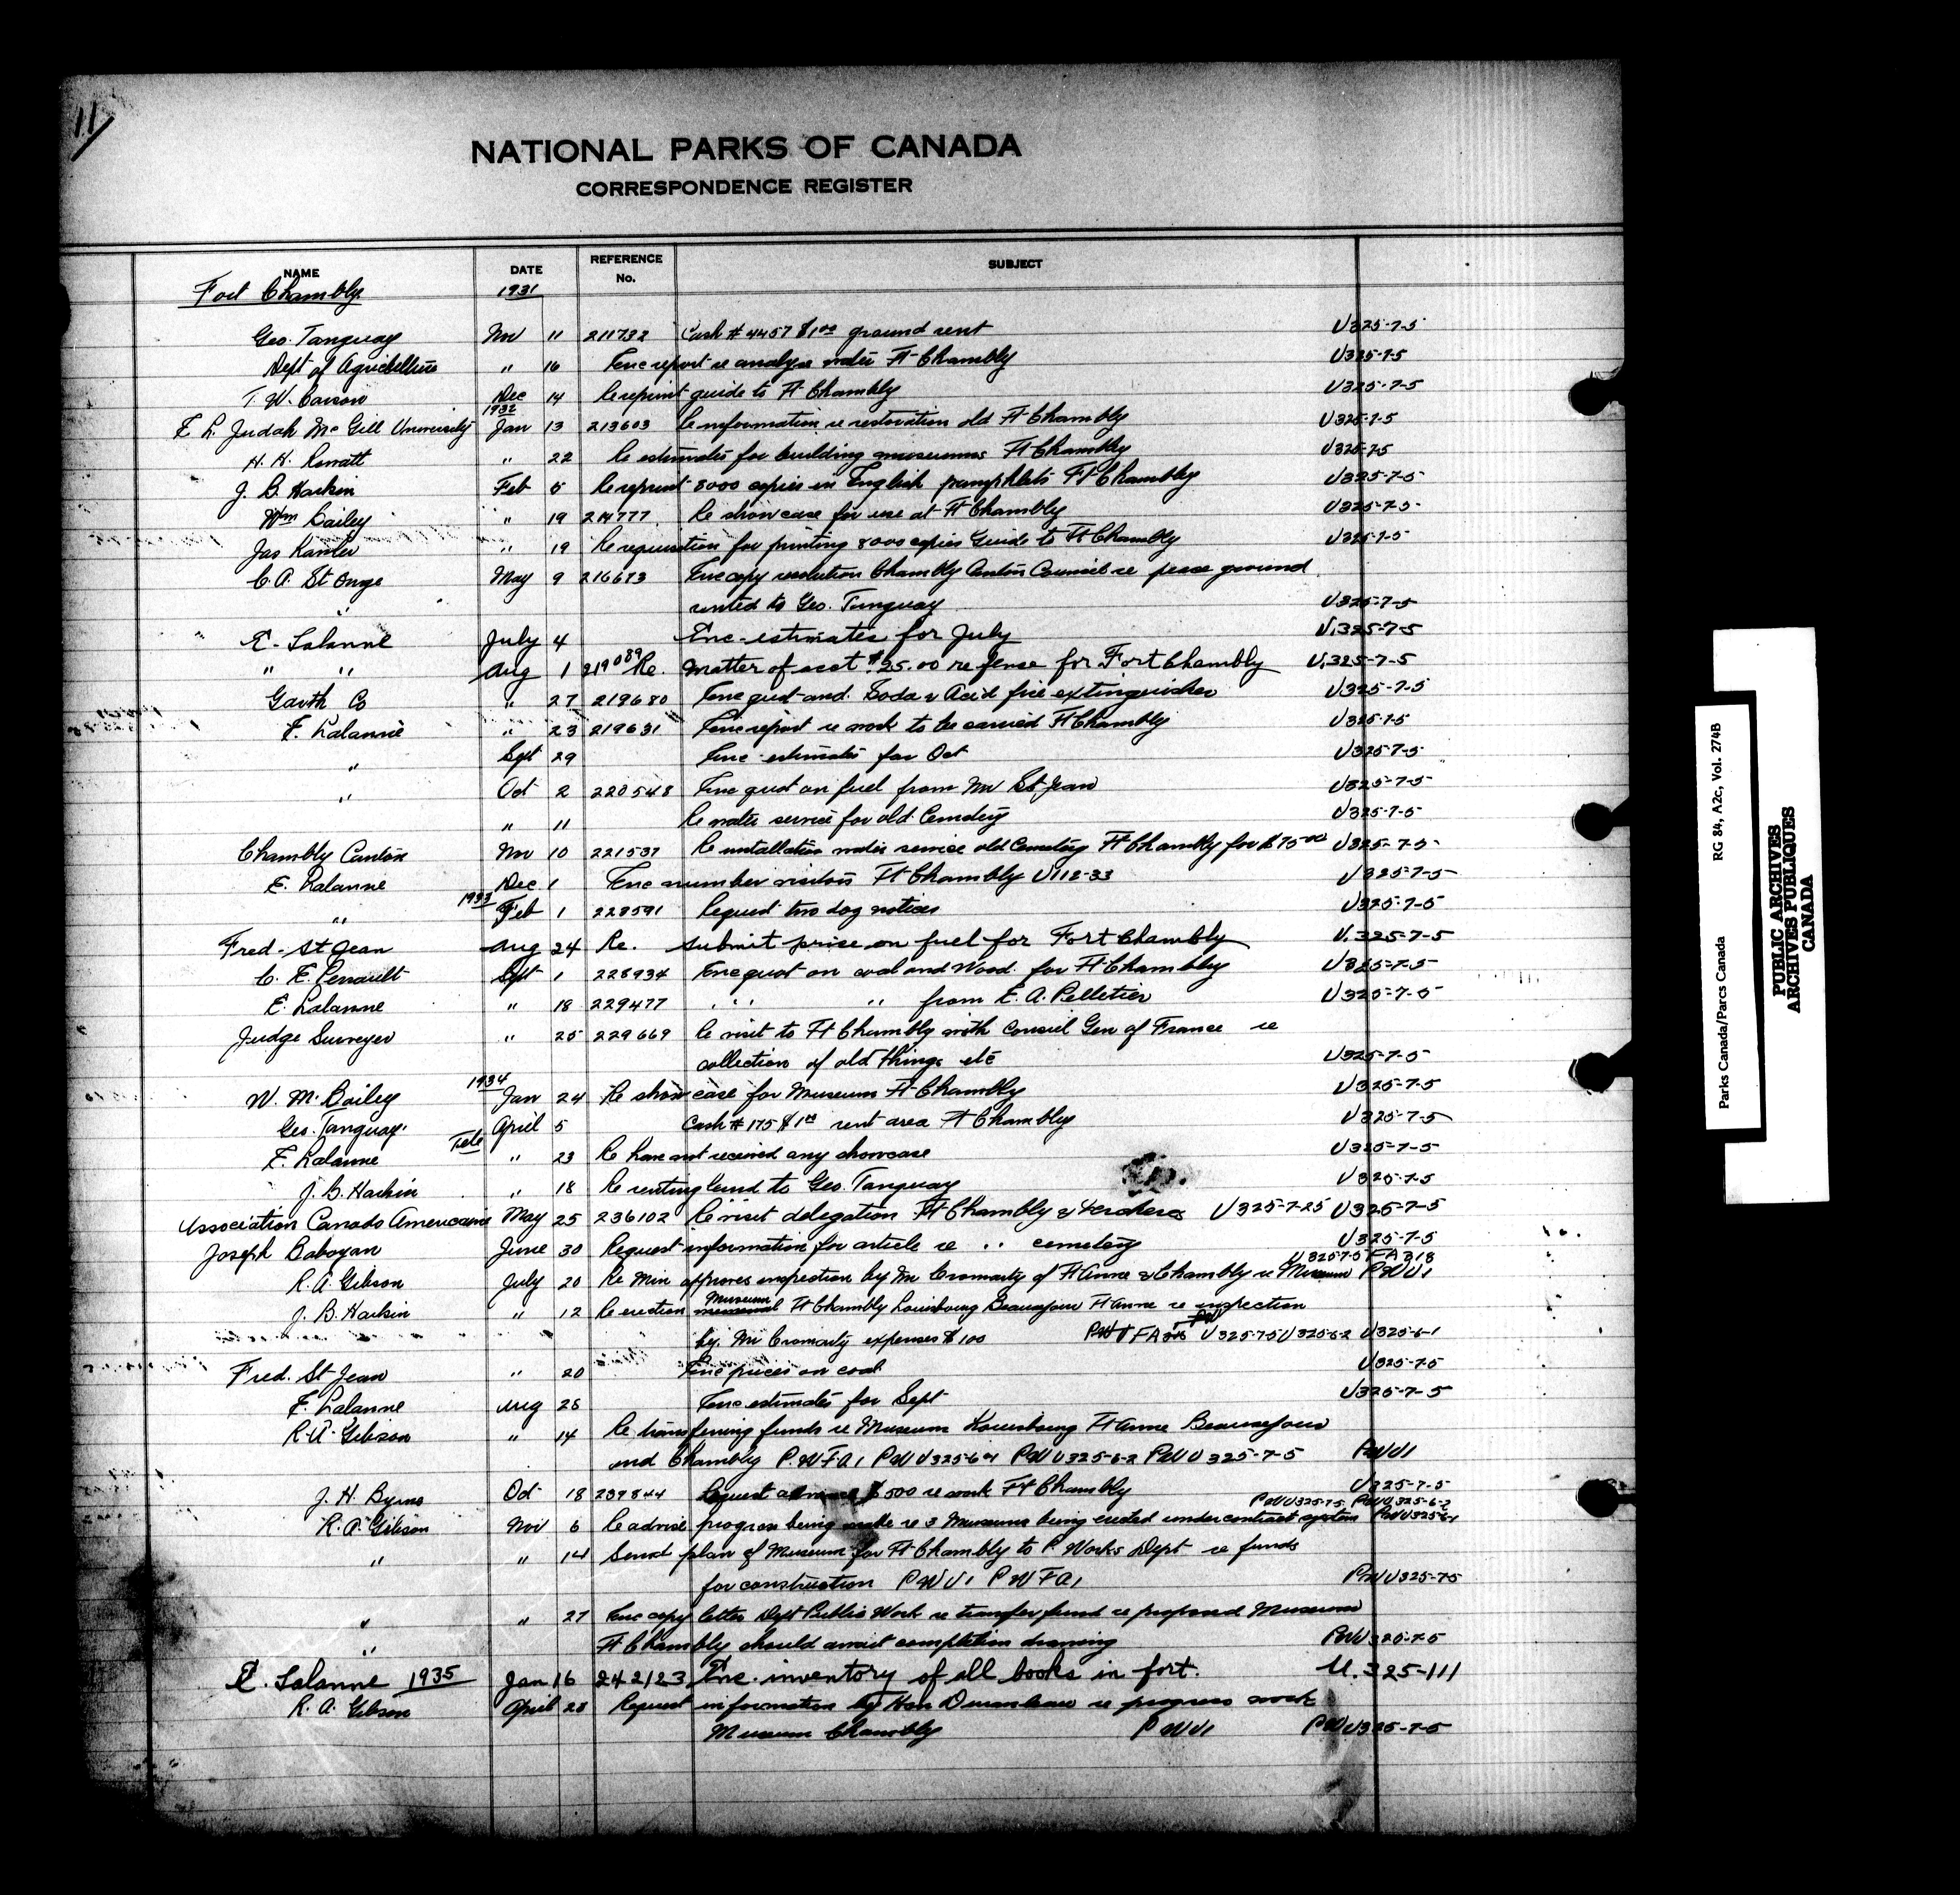 11
NATIONAL PARKS OF CANADA
CORRESPONDENCE REGISTER
NAME DATE REFERENCE No. SUBJECT
Fort Chambly 1931
Geo. Tanguay Nov 11 211732 Cash # 4457 $1.00 ground rent U325-7-5
Dept of Agriculture " 16 Enc report re analysis water Ft Chambly U325-7-5
T. W. Carson Dec 14 Re reprint guide to Ft Chambly U325-7-5
1932
E. L. Judah McGill University Jan 13 213603 Re information re restoration old Ft Chambly U325-7-5
H. H. Rowatt " 22 Re estimates for building museums Ft Chambly U325-7-5
J. B. Harkin Feb 5 Re reprint 8000 copies in English pamphlets Ft Chambly U325-7-5
Wm Bailey " 19 214777 Re showcase for use at Ft Chambly U325-7-5
Jas " 19 Re requisition for printing 8000 copies Guide to Ft Chambly U325-7-5
C. A. St Onge May 9 216673 Enc copy resolution Chambly Canton Council re ground
" rented to Geo. Tanguay U325-7-5
E. Lalanne July 4 Enc-estimates for July U.325-7-5
" " Aug 1 219089 Re. matter of acct $25.00 re fense for Fort Chambly U.325-7-5
Garth Co " 27 219680 Enc quot and Soda & Acid fire extinguisher U325-7-5
E. Lalanne " 23 219631 Enc report re work to be carried Ft Chambly U325-7-5
" Sept 29 Enc estimates for Oct U325-7-5
" Oct 2 220548 Enc quot on fuel from Mr St Jean U325-7-5
" 11 Re water service for old Cemetery U325-7-5
Chambly Canton Nov 10 221537 Re installation water service old Cemetery Ft Chambly for $75.00 U325-7-5
E. Lalanne Dec 1 Enc number visitors Ft Chambly U112-33 U325-7-5
1933
" Feb 1 223591 Request two dog notices U325-7-5
Fred-St Jean Aug 24 Re. submit price on fuel for Fort Chambly U.325-7-5
C. E. Perrault Sept 1 228934 Enc quot on coal and wood for Ft Chambly U325-7-5
E. Lalanne " 18 229477 " " from E. A. Pelletier U325-7-5
Judge Surveyer " 25 229669 Re visit to Ft Chambly with Consul Gen of France re
collection of old things etc U325-7-5
1934
W. M. Bailey Jan 24 Re show case for Museum Ft Chambly U325-7-5
Geo. Tanguay April 5 Cash # 175 $1.00 rent area Ft Chambly U325-7-5
E. Lalanne Tele " 23 Re have not received any showcase U325-7-5
J. B. Harkin " 18 Re renting land to Geo. Tanguay U325-7-5
Association Canado Americaine May 25 236102 Re visit delegation Ft Chambly & U325-7-25 U325-7-5
Joseph Baboyan June 30 Request information for article re " cemetery U325-7-5
U325-7-5 FA318
R. A. Gibson July 20 Re Min approves inspection by Mr Cromarty of Ft Anne & Chambly re Museum PWU1
J. B. Harkin " 12 Re erection Museum Ft Chambly Louisbourg Beausejour Ft Anne re inspection
by Mr Cromarty expenses $100 U325-7-5 U325-6-2 U325-6-1
Fred. St Jean " 20 Enc prices on coal U325-7-5
E. Lalanne Aug 28 Enc estimates for Sept U325-7-5
R. A. Gibson " 14 Re transferring funds re Museum Louisbourg Ft Anne Beausejour
and Chambly P.W.FA1 PWU325-6-1 PWU325-6-2 PWU325-7-5 PWU1
J. H. Byrns Oct 18 239844 Request advance $500 re work Ft Chambly U325-7-5
PWU325-7-5 PWU325-6-2
R. A. Gibson Nov 6 Re advise progress being made re 3 Museums being erected under contract system PWU325-6-1
" " 14 Send plan of Museum for Ft Chambly to P. Works Dept re funds
for construction PWU1 PWFA1 PWU325-7-5
" " 27 Enc copy letter Dept Public Work re transfer fund re proposed Museum
" Ft Chambly should await completion drawing PWU325-7-5
E. Lalanne 1935 Jan 16 242123 Enc. inventory of all books in fort. U.325-111
R. A. Gibson April 28 Request information by Hon Duranleau re progress work
Museum Chambly PWU1 PWU325-7-5
Parks Canada/Parcs Canada RG 84, A2c, Vol. 274B
PUBLIC ARCHIVES
ARCHIVES PUBLIQUES
CANADA